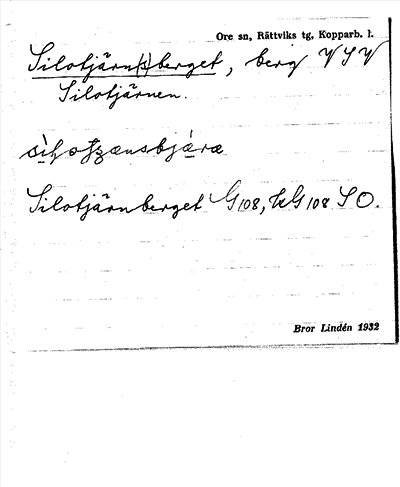 Ore sn, Rättviks tg, Kopparb. l.
Silotjärn(s)berget, berg VSV
Silotjärnen.
Silotjärnberget G108, HG108 SO.
Bror Lindén 1932